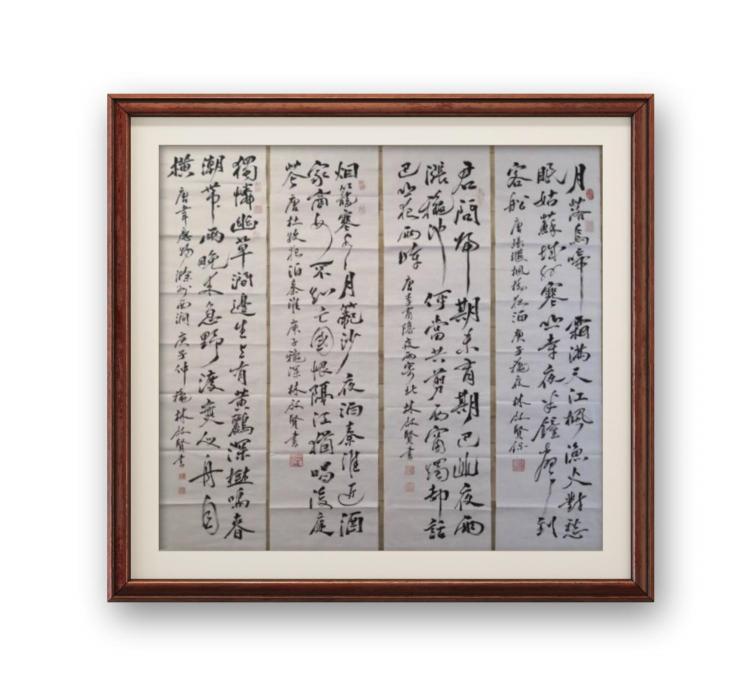 月落烏啼霜滿天江楓漁火對愁
眠姑蘇城外寒山寺夜半鐘聲到
客船 唐張繼楓橋夜泊 庚子龝夜 林啟賢錄
君問歸期未有期巴山夜雨
漲龝池何當共剪西窗燭却話
巴山夜雨時 唐李商隱夜雨寄北 林啟賢書
烟籠寒水月籠沙夜泊秦淮近酒
家商女不知亡國恨隔江猶唱後庭
花 唐杜牧夜泊秦淮 庚子龝深 林啟賢書
獨憐幽草澗邊生上有黃鸝深樹鳴春
潮帶雨晚來急野渡無人舟自
橫 唐韋應物滁州西澗 庚子仲龝 林啟賢書